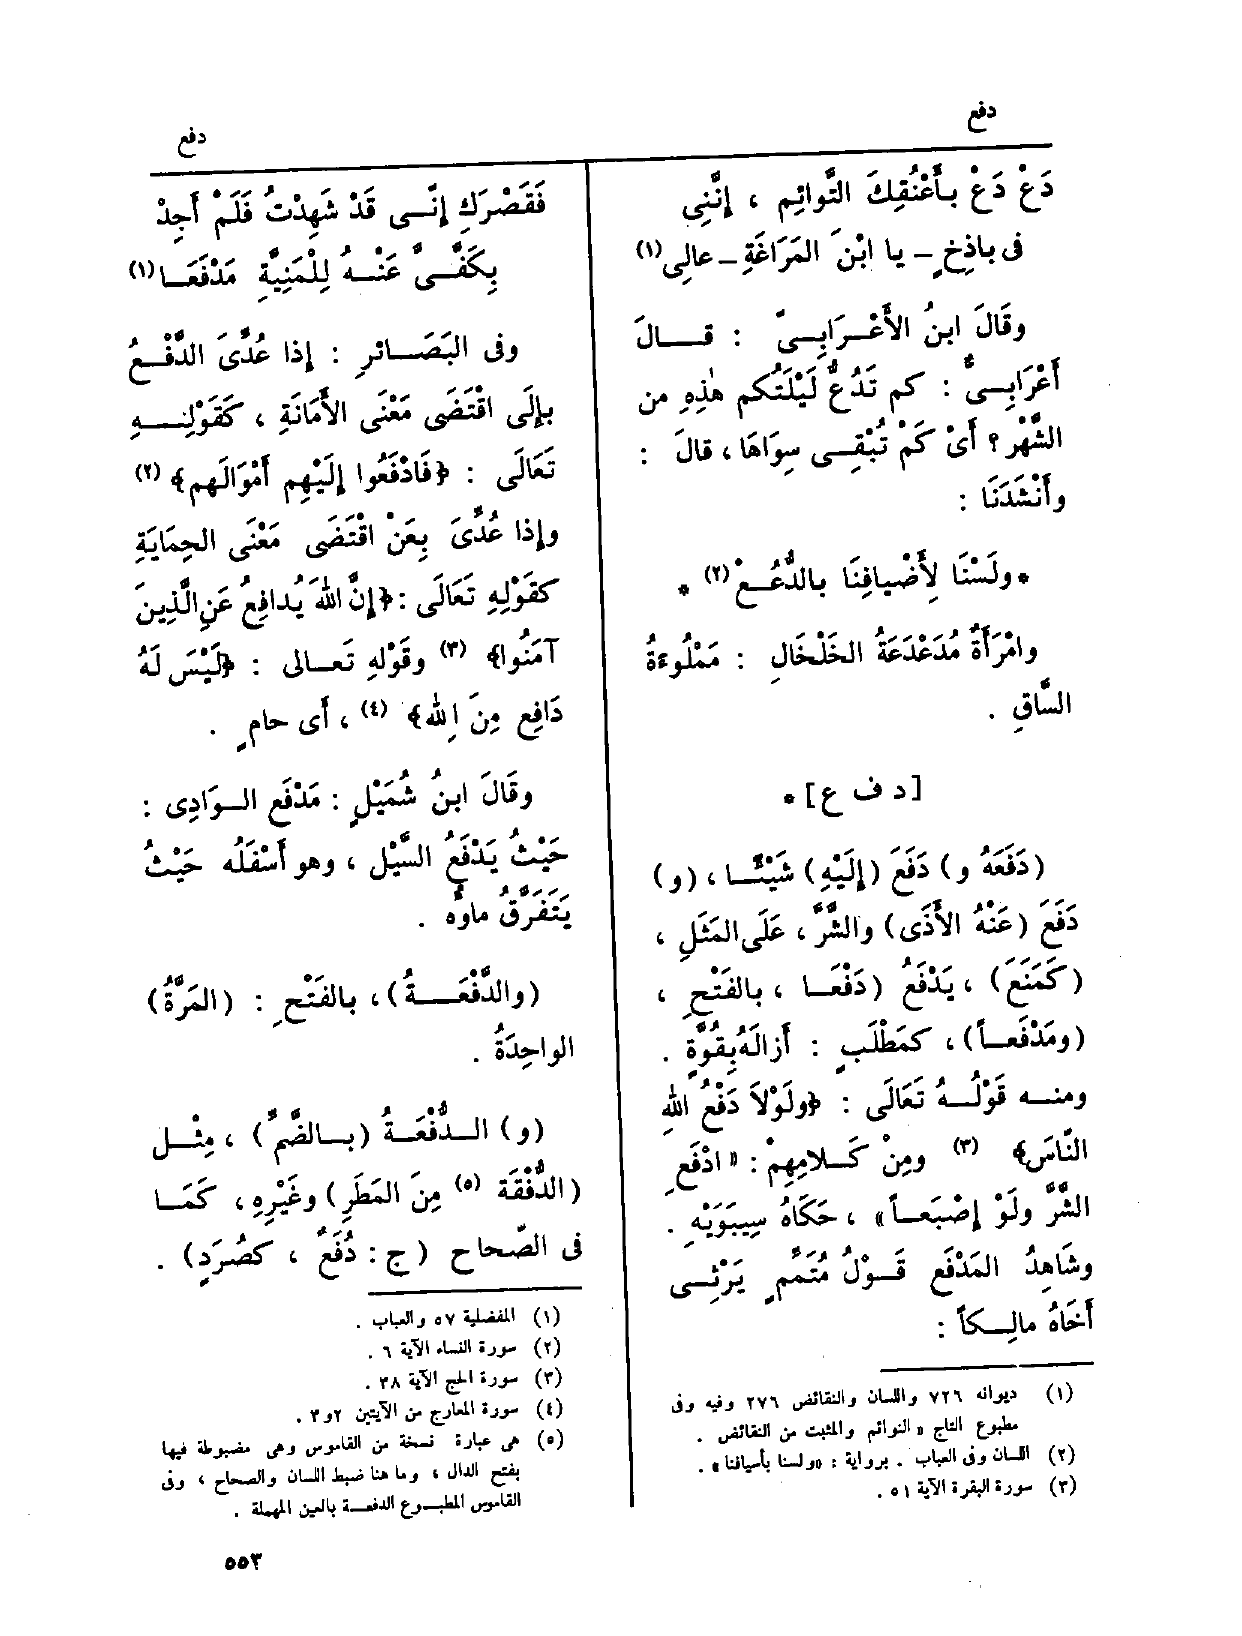 دفع
دفع
دَعْ دَعْ بِأَعْنُقِكَ التَّوائِم ، إِنَّنِي
فى باذِخٍ - يا ابْنَ المَرَاغَةِ - عالِى (١)
وقَالَ ابنُ الأَعْـرَابِـىّ : قــالَ
أَعْرَابِـىٌّ : كم تَدُعُّ لَيْلَتُكم هٰذِهِ من
الشَّهْر ؟ أَىْ كَمْ تُبْقِـى سِوَاهَا ، قالَ :
وأَنْشَدَنَا :
* ولَسْنَا لِأَضْيافِنَا بالدُّعُـعْ (٢) *
وامْرَأَةٌ مُدَعْدَعَةُ الخَلْخَالِ : مَمْلُوءَةُ
السَّاقِ .
[ د ف ع ] *
(دَفَعَهُ و) دَفَعَ (إِلَيْهِ) شَيْئًـا ، (و)
دَفَعَ (عَنْهُ الأَذَى) والشَّرَّ ، عَلَى المَثَلِ ،
(كَمَنَعَ) ، يَدْفَعُ (دَفْعَـا ، بالفَتْحِ ،
(ومَدْفَعـاً) ، كمَطْلَبٍ : أَزالَهُ بِقُوَّةٍ .
ومنـه قَوْلُـهُ تَعَالَى : ﴿ولَوْلاَ دَفْعُ اللهِ
النَّاسَ﴾ (٣) ومِنْ كَـلامِهِمْ : « ادْفَعِ
الشَّرَّ ولَوْ إِصْبَعـاً » ، حَكَاهُ سِيبَوَيْهِ .
وشَاهِدُ المَدْفَعِ قَـوْلُ مُتَمِّمٍ يَرْثِـى
أَخَاهُ مالِـكاً :
(١) ديوانه ٧٢٦ واللسان والنقائض ٢٧٦ وفيه وفى
مطبوع التاج « النوائم والمثبت من النقائض .
(٢) اللسان وفى العباب . برواية : «ولسنا بأسيافنا » .
(٣) سورة البقرة الآية ٥١ .
فَقَصْرَكِ إِنَّـى قَدْ شَهِدْتُ فَلَمْ أَجِدْ
بِكَفَّـىَّ عَنْـهُ لِلْمَنِيَّةِ مَدْفَعَـا (١)
وفى البَصَـائرِ : إذا عُدِّىَ الدَّفْـعُ
بإِلَى اقْتَضَى مَعْنَى الأَمَانَةِ ، كَقَوْلِـهِ
تَعَالَى : ﴿فَادْفَعُوا إِلَيْهِم أَمْوَالَهم﴾ (٢)
وإذا عُدِّىَ بِعَنْ اقْتَضَى مَعْنَى الحِمَايَةِ
كقَوْلِهِ تَعَالَى : ﴿إِنَّ اللهَ يُدافِعُ عَنِ الَّذِينَ
آمَنُوا﴾ (٣) وقَوْلهِ تَعـالى : ﴿لَيْسَ لَهُ
دَافِع مِنَ اللهِ﴾ (٤) ، أَى حامٍ .
وقَالَ ابنُ شُمَيْلٍ : مَدْفَع الـوَادِى :
حَيْثُ يَدْفَعُ السَّيْل ، وهو أَسْفَلُه حَيْثُ
يَتَفَرَّقُ ماؤُه .
(والدَّفْعَـةُ) ، بالفَتْحِ : (المَرَّةُ)
الواحِدَةُ .
(و) الـدُّفْعَـةُ (بـالضَّمِّ) ، مِثْـل
(الدُّفْقَة (٥) مِنَ المَطَرِ) وغَيْرِهِ ، كَمَـا
فى الصّحاح (ج : دُفَعٌ ، كصُرَدٍ) .
(١) المفضلية ٥٧ والعباب .
(٢) سورة النساء الآية ٦ .
(٣) سورة الحج الآية ٣٨ .
(٤) سورة المعارج من الآيتين ٢و٣ .
(٥) هى عبارة نسخة من القاموس وهى مضبوطة فيها
بفتح الدال ، وما هنا ضبط اللسان والصحاح ، وفى
القاموس المطبـوع الدفعـة بالعين المهملة .
٥٥٣